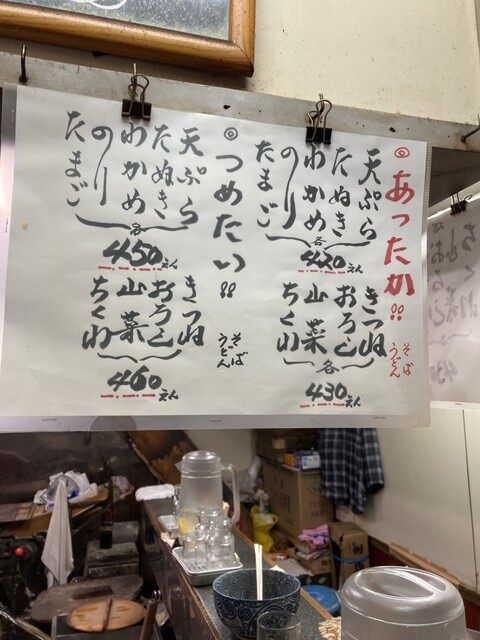 ◎あったか!!
そば
うどん
天ぷら
たぬき
わかめ
のり
たまご
各
420えん
きつね
おろし
山菜
ちくわ
各
430えん
◎つめたい!!
そば
うどん
天ぷら
たぬき
わかめ
のり
たまご
各
450えん
きつね
おろし
山菜
ちくわ
460えん